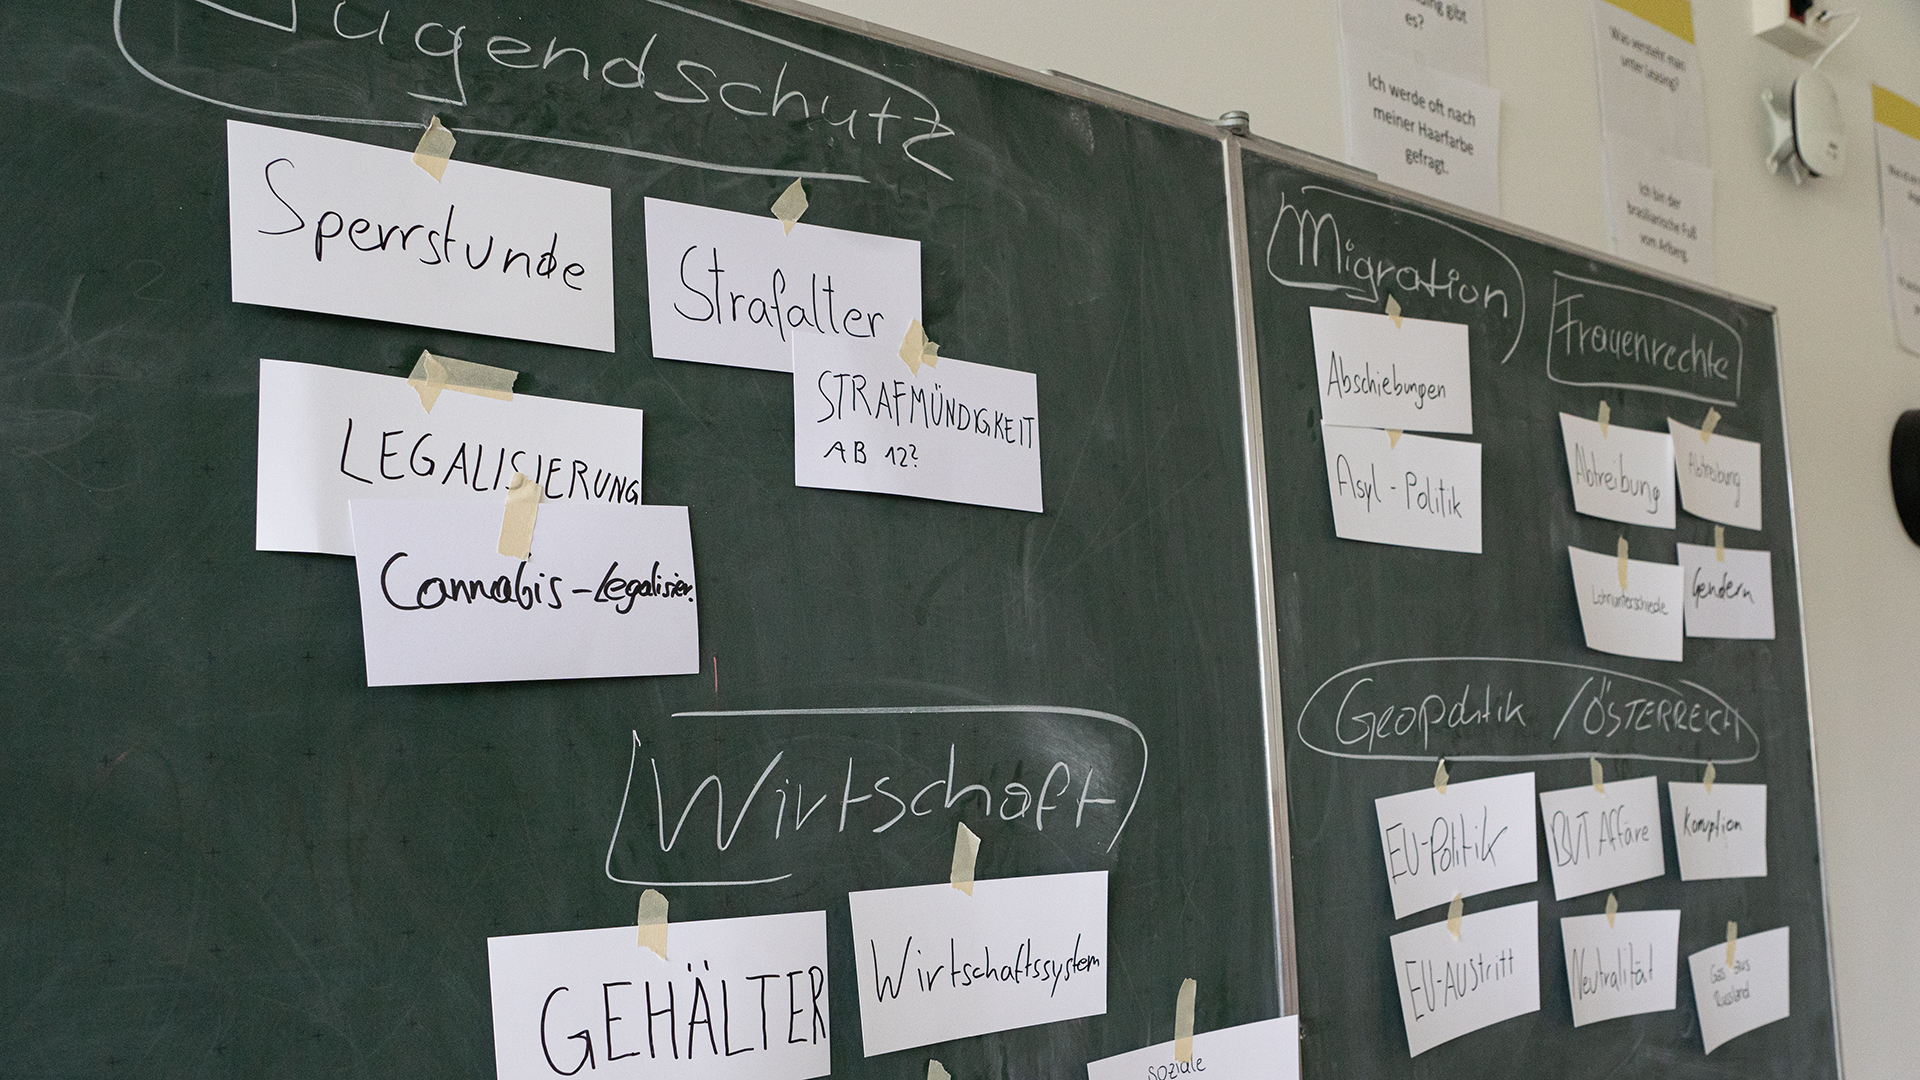 Jugendschutz
Sperrstunde
Strafalter
STRAFMÜNDIGKEIT
AB 12?
LEGALISIERUNG
Cannabis-Legalisier.
Wirtschaft
GEHÄLTER
Wirtschaftssystem
soziale
Migration
Abschiebungen
Asyl-Politik
Frauenrechte
Abtreibung
Abtreibung
Lohnunterschiede
Gendern
Geopolitik / ÖSTERREICH
EU-Politik
BVT Affäre
Korruption
EU-AUStritt
Neutralität
Gas aus
Russland
gibt
es?
Ich werde oft nach
meiner Haarfarbe
gefragt.
Was versteht man
unter Leasing?
Ich bin der
brasilianische Fuß
vom Arlberg.